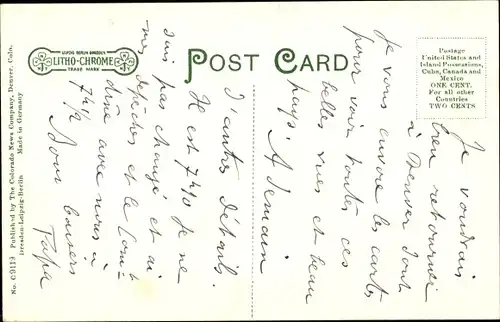 LEIPZIG BERLIN DRESDEN
LITHO-CHROME
TRADE MARK
POST CARD
Postage
United States and
Island Possessions,
Cuba, Canada and
Mexico
ONE CENT.
For all other
Countries
TWO CENTS
No. C9113 Published by The Colorado News Company, Denver, Colo.
Dresden-Leipzig-Berlin Made in Germany
Je voudrais
bien retourner
à Denver dont
je vous envoie les cartes
pour voir toutes ces
belles vues et beau
pays. A demain
d'autres détails.
Il est 7 40 je ne
suis pas changé et ai
mes dépêches et le Comte
dîne avec nous à
7 ½
Bons baisers
Papa